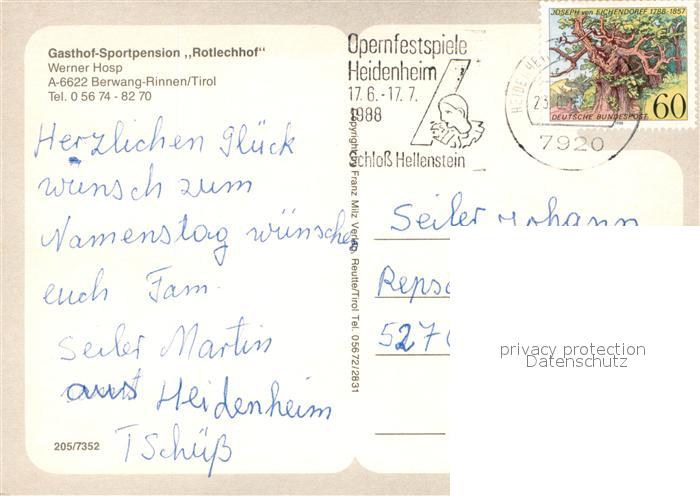 Gasthof-Sportpension „Rotlechhof"
Werner Hosp
A-6622 Berwang-Rinnen/Tirol
Tel. 0 56 74 - 82 70
Herzlichen Glück
wünsch zum
Namenstag wünschen
euch Fam.
Seiler Martin
aus Heidenheim
Tschüß
205/7352
Copyright by Franz Milz Verlag, Reutte/Tirol Tel. 05672/2831
Opernfestspiele
Heidenheim
17. 6. - 17. 7.
1988
Schloß Hellenstein
7920
JOSEPH von EICHENDORFF 1788-1857
60
DEUTSCHE BUNDESPOST
Seiler Johann
privacy protection
Datenschutz